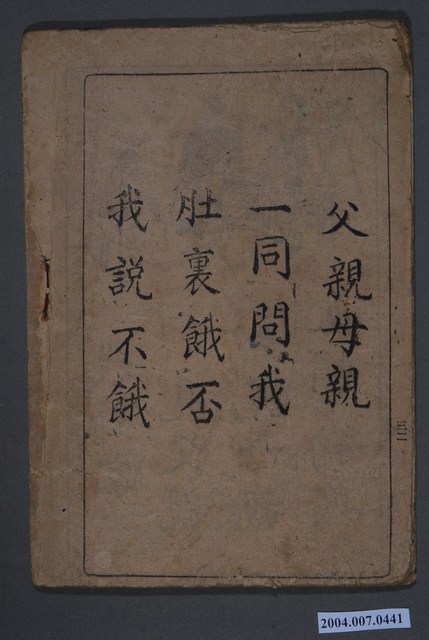 父親母親
一同問我
肚裏餓否
我説不餓
三二
2004.007.0441